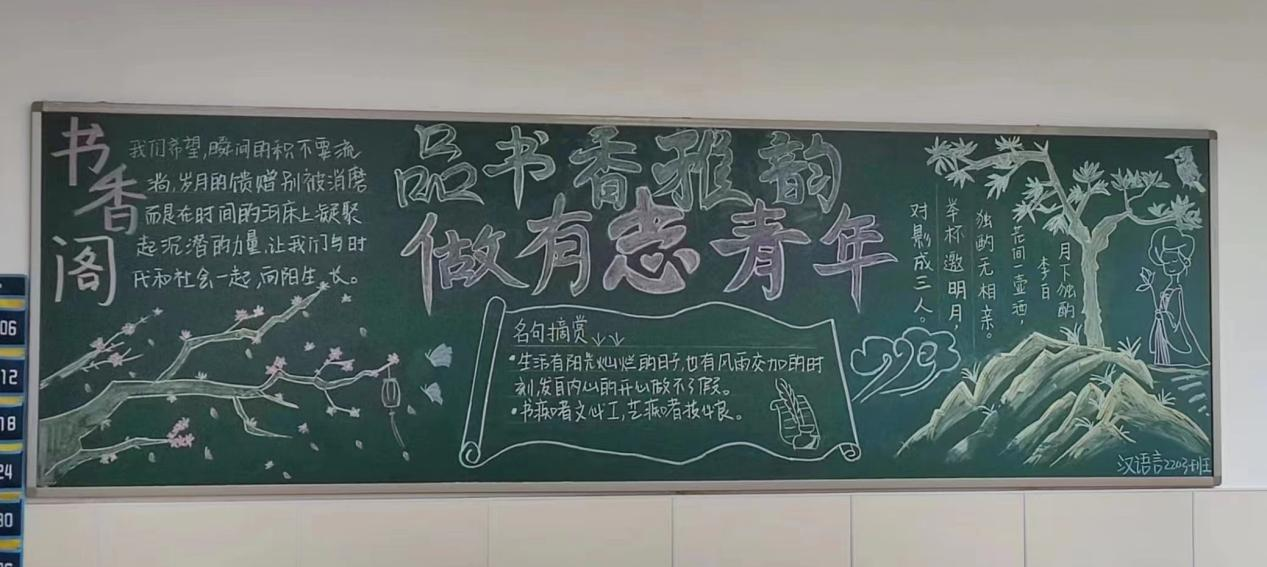 书香阁
我们希望,瞬间的积不要流
淌,岁月的馈赠别被消磨
而是在时间的河床上凝聚
起沉潜的力量,让我们与时
代和社会一起,向阳生长。
品书香雅韵
做有志青年
名句摘赏
·生活有阳光灿烂的日子,也有风雨交加的时
刻,发自内心的开心做不了假。
·书痴者文必工,艺痴者技必良。
月下独酌
李白
花间一壶酒,
独酌无相亲。
举杯邀明月,
对影成三人。
汉语言2203班
06
12
18
24
30